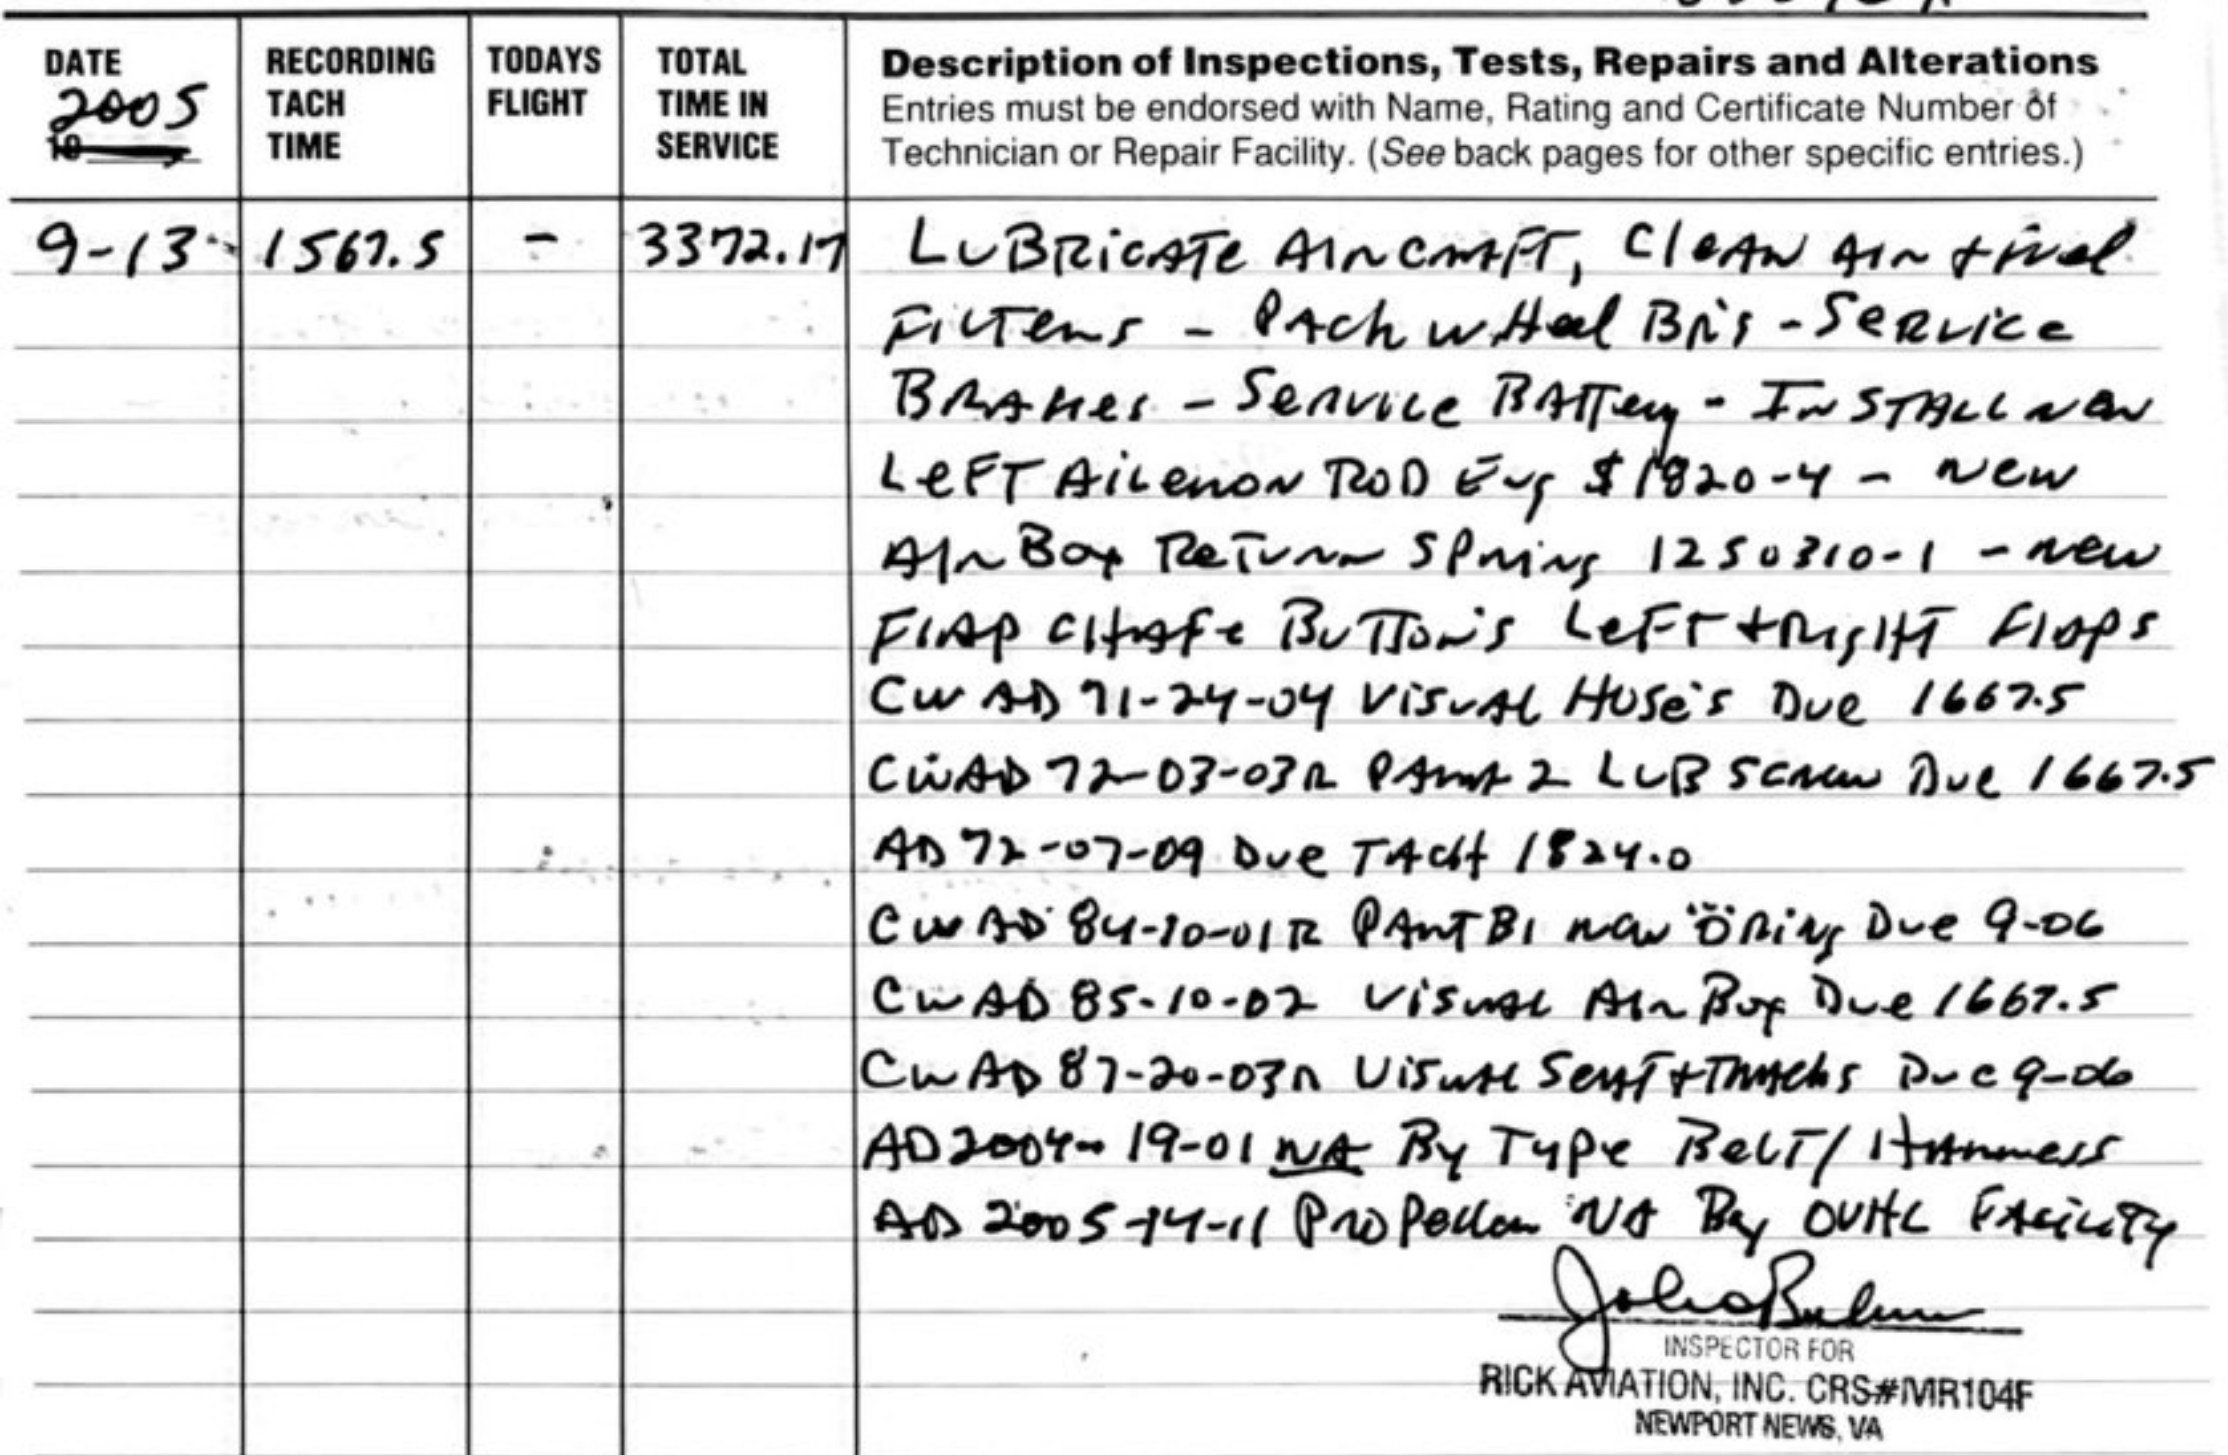 DATE
2005
19
RECORDING
TACH
TIME
TODAYS
FLIGHT
TOTAL
TIME IN
SERVICE
Description of Inspections, Tests, Repairs and Alterations
Entries must be endorsed with Name, Rating and Certificate Number of
Technician or Repair Facility. (See back pages for other specific entries.)
9-13 1567.5 - 3372.17 LUBRICATE AIRCRAFT, CLEAN AIR + FUEL
FILTERS - PACK WHEEL BR'S - SERVICE
BRAKES - SERVICE BATTERY - INSTALL NEW
LEFT AILERON ROD END S1820-4 - NEW
AIR BOX RETURN SPRING 1250310-1 - NEW
FLAP CHAFE BUTTON'S LEFT + RIGHT FLAPS
CW AD 71-24-04 VISUAL HOSE'S DUE 1667.5
CW AD 72-03-03R PART 2 LUB SCREW DUE 1667.5
AD 72-07-09 DUE TACH 1824.0
CW AD 84-10-01R PART B1 NEW "O"RING DUE 9-06
CW AD 85-10-02 VISUAL AIR BOX DUE 1667.5
CW AD 87-20-03R VISUAL SEAT + TRACKS DUE 9-06
AD 2004-19-01 NA BY TYPE BELT/HARNESS
AD 2005-14-11 PROPELLER NA BY OVHL FACILITY
INSPECTOR FOR
RICK AVIATION, INC. CRS#MR104F
NEWPORT NEWS, VA